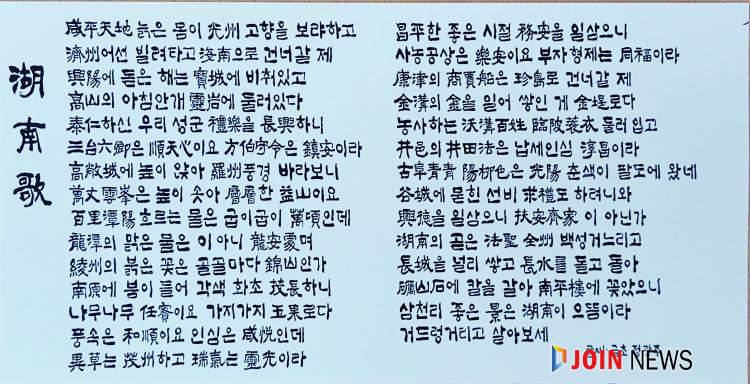 湖南歌
咸平天地 늙은 몸이 光州 고향을 보랴하고
濟州어선 빌려타고 海南으로 건너갈 제
興陽에 돋은 해는 寶城에 비취있고
高山의 아침안개 靈岩에 둘러있다
泰仁하신 우리 성군 禮樂을 長興하니
三台六卿은 順天心이요 方伯守令은 鎭安이라
高敞城에 높이 앉아 羅州풍경 바라보니
萬丈雲峯은 높이 솟아 層層한 益山이요
百里潭陽 흐르는 물은 굽이굽이 萬頃인데
龍潭의 맑은 물은 이 아니 龍安處며
綾州의 붉은 꽃은 골골마다 錦山인가
南原에 봄이 들어 각색 화초 茂長하니
나무나무 任實이요 가지가지 玉果로다
풍속은 和順이요 인심은 咸悅인데
異草는 茂州하고 瑞氣는 靈光이라
昌平한 좋은 시절 務安을 일삼으니
사농공상은 樂安이요 부자형제는 同福이라
康津의 商賈船은 珍島로 건너갈 제
金溝의 金을 일어 쌓인 게 金堤로다
농사하는 沃溝百姓 臨陂蓑衣 둘러 입고
井邑의 井田法은 납세인심 淳昌이라
古阜靑靑 陽柳色은 光陽 춘색이 팔도에 왔네
谷城에 묻힌 선비 求禮도 하려니와
興德을 일삼으니 扶安齊家 이 아닌가
湖南의 골은 法聖 全州 백성거느리고
長城을 널리 쌓고 長水를 돌고 돌아
礪山石에 칼을 갈아 南平樓에 꽂았으니
삼천리 좋은 경은 湖南이 으뜸이라
거드렁거리고 살아보세
JOIN NEWS